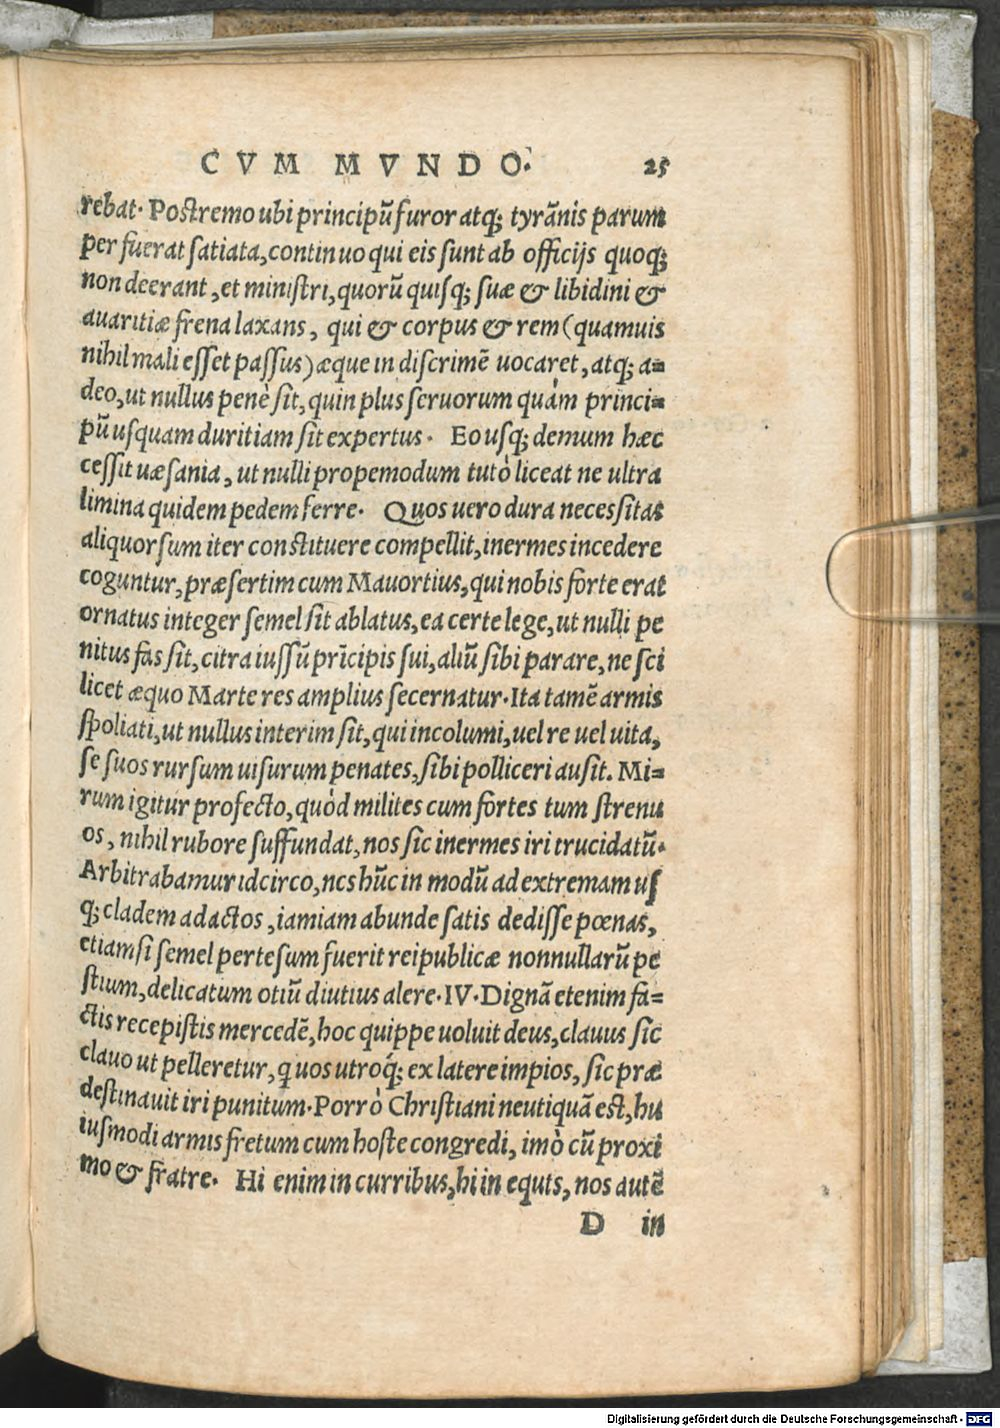 CVM MVNDO. 25
rebat. Postremo ubi principũ furor atq; tyrãnis parum
per fuerat satiata, continuo qui eis sunt ab officijs quoq;
non deerant, et ministri, quorũ quisq; suæ & libidini &
auaritiæ frena laxans, qui & corpus & rem (quamuis
nihil mali esset passus) æque in discrimẽ uocaret, atq; a=
deo, ut nullus penè sit, quin plus seruorum quàm princi=
pũ usquam duritiam sit expertus. Eousq; demum hæc
cessit uæsania, ut nulli propemodum tutò liceat ne ultra
limina quidem pedem ferre. Quos uero dura necessitas
aliquorsum iter constituere compellit, inermes incedere
coguntur, præsertim cum Mauortius, qui nobis forte erat
ornatus integer semel sit ablatus, ea certe lege, ut nulli pe
nitus fas sit, citra iussũ prĩcipis sui, aliũ sibi parare, ne sci
licet æquo Marte res amplius secernatur. Ita tamẽ armis
spoliati, ut nullus interim sit, qui incolumi, uel re uel uita,
se suos rursum uisurum penates, sibi polliceri ausit. Mi=
rum igitur profecto, quòd milites cum fortes tum strenu
os, nihil rubore suffundat, nos sic inermes iri trucidatũ.
Arbitrabamur idcirco, ncs hũc in modũ ad extremam uſ
q; cladem adactos, iamiam abunde satis dedisse pœnas,
etiamsi semel pertesum fuerit reipublicæ nonnullarũ pe
stium, delicatum otiũ diutius alere. IV. Dignã etenim fa=
ctis recepistis mercedẽ, hoc quippe uoluit deus, clauus sic
clauo ut pelleretur, quos utroq́; ex latere impios, sic præ
destinauit iri punitum. Porrò Christiani neutiquã est, hu
iusmodi armis fretum cum hoste congredi, imò cũ proxi
mo & fratre. Hi enim in curribus, hi in equts, nos autẽ
D in
Digitalisierung gefördert durch die Deutsche Forschungsgemeinschaft - DFG